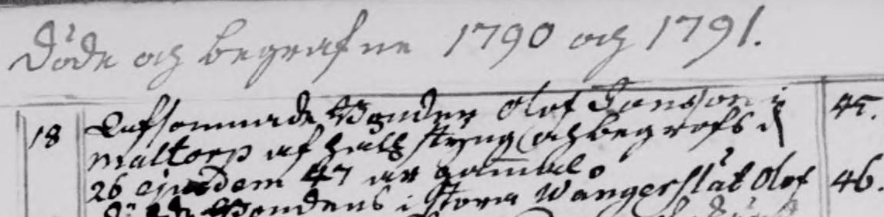 Döde och begrafne 1790 och 1791.
18 Afsomnade Bonden Olof Jansson i 45.
Maltorp af hall styng och begrofs d
26 ejusdem 47 år gammal
Bondens i Stora Wångerslät Olof 46.